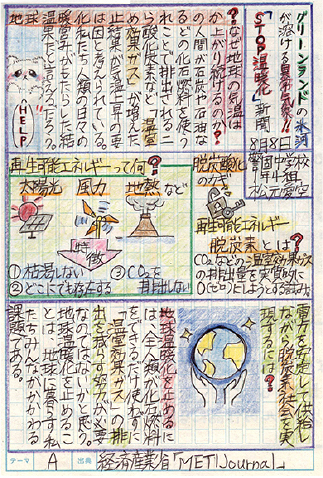 グリーンランドの氷河
が溶ける異常気象!!
「STOP温暖化」新聞
8月8日
なぜ地球の気温は
上がり続けるのか?
の人間が石炭や石油な
どの化石燃料を使う
ことで排出される二
酸化炭素など「温室
効果ガス」が増えた
結果が気温上昇の要
因と考えられている。
私たち人類の日々の
暖営みがもたらした結
果だと言えるだろう。
地球温
HELP
再生可能エネルギーって何?
太陽光 風力 地熱 など
特徴
①枯渇しない
②どこにでも存在する
③CO₂を
排出しない
脱炭酸化
のカギ
再生可能エネルギー
脱炭素とは?
CO₂などの温室効果ガス
の排出量を実質的に
0(ゼロ)にしようとする試み
電力を安定して供給し
ながら脱炭素社会を実
現するには?
地球温暖化を止めるに
は、全人類が化石燃料
をできるだけ使わずに
「温室効果ガス」の排
出を減らす努力が必要
なのではないかと思う。
地球温暖化を止めるこ
とは、地球に暮らす私
たちみんなにかかわる
課題である。
テーマ A 出典 経済産業省「METI Journal」